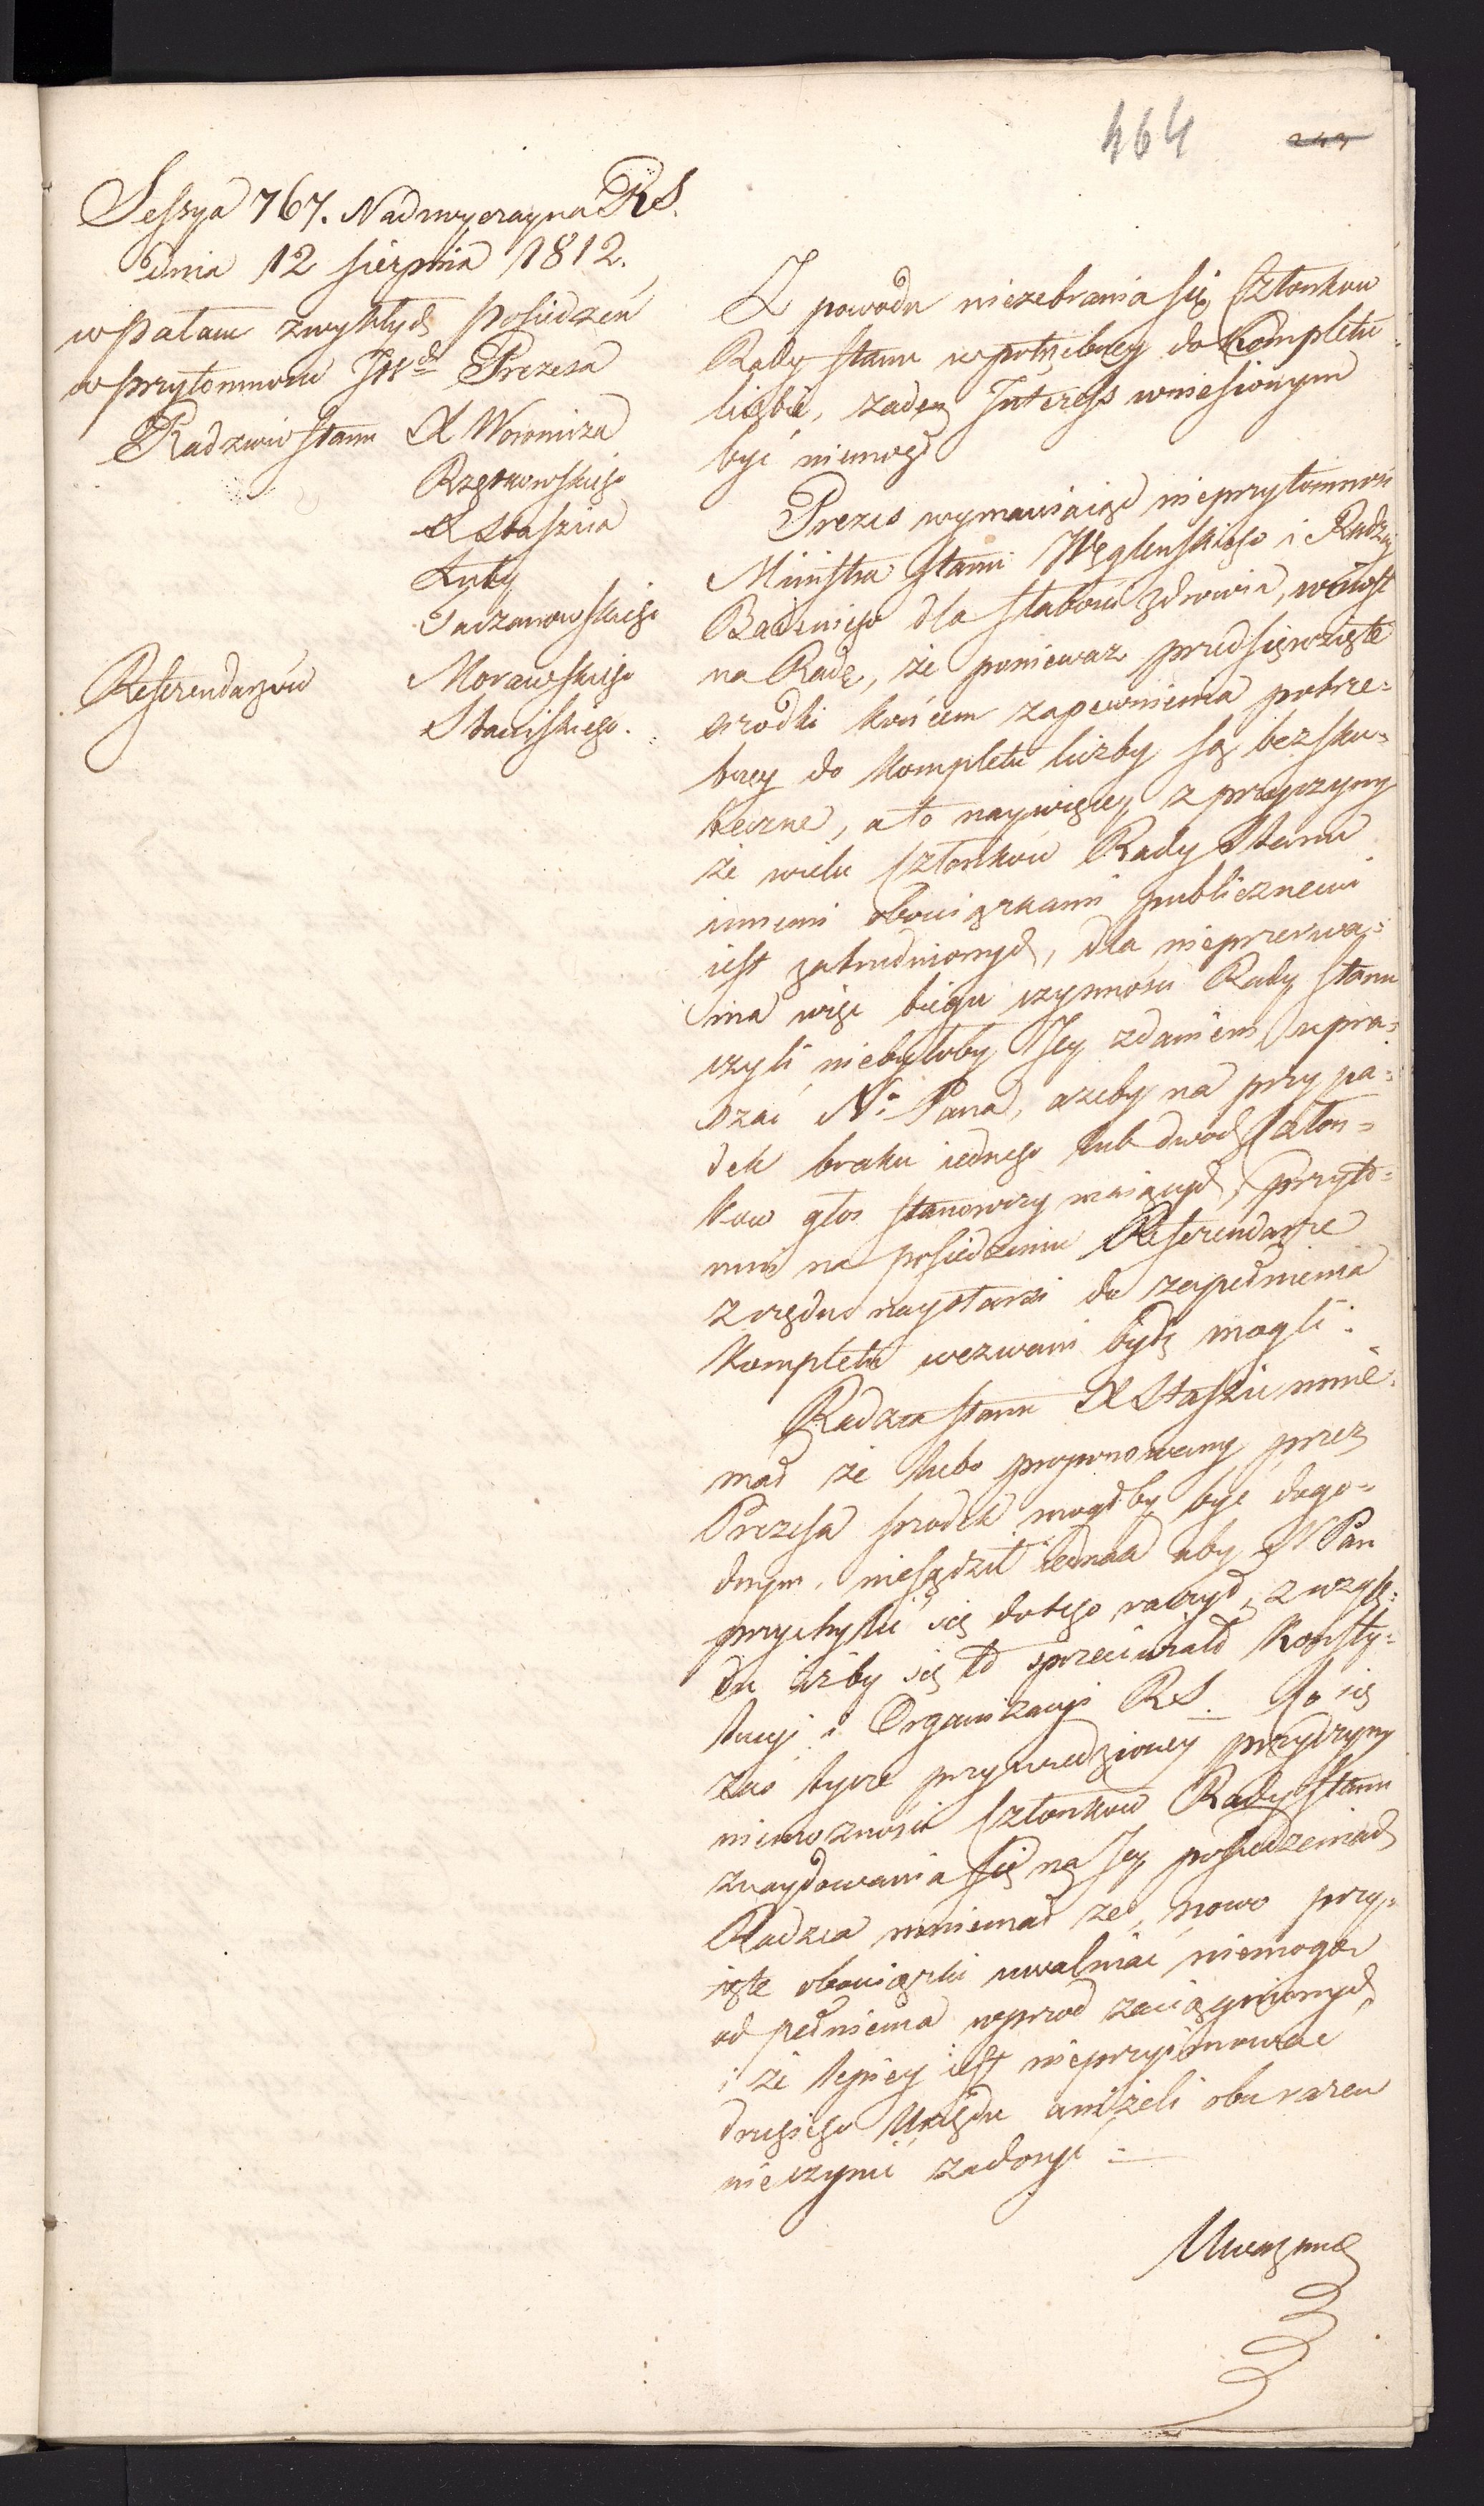 464
243
Sessya 767. Nadzwyczayna RS.
dnia 12 sierpnia 1812.
w Pałacu zwykłych posiedzeń
w przytomności JWch Prezesa
Radzców Stanu X Woronicza
Rzętkowskiego
X Staszica
Łuby
Taczanowskiego
Referendarzów Morawskiego
Stawiskiego.
Z powodu niezebrania się Członków
Rady Stanu w potrzebney do Kompletu
liczbie, żaden Interess wniesionym
być niemógł
Prezes wymawiaiąc nieprzytomność
Ministra Stanu Węglenskiego i Radzcy
Badeniego dla słabości zdrowia, wniósł
na Radę, że ponieważ przedsięwzięte
srodki końcem zapewnienia potrze=
bney do Kompletu liczby są bezsku=
teczne, a to naywięcey z przyczyny
że wielu Członków Rady Stanu
innemi obowiązkami publicznemi
iest zatrudnionych, dla nieprzerwa=
nia więc biegu czynności Rady Stanu
czyli niebyłoby Jey zdaniem upra=
szać N. Pana, ażeby na przypa=
dek braku iednego lub dwóch Człon=
ków głos stanowczy maiących, przyto=
mni na posiedzeniu Referendarze
z rzędu naystarsi do zapełnienia
Kompletu wezwani bydź mogli.
Radzca Stanu X Staszic mnie=
mał że lubo proponowany przez
Prezesa srodek mógłby być dogo=
dnym, niesądził iednak aby N Pan
przychylić się do tego raczył, z wzglę=
du iżby się to sprzeciwiało Konsty=
tucyi i Organizacyi RS. Co się
zaś tycze przywiedzioney przyczyny
niemożności Członków Rady Stanu
znaydowania się na Jey posiedzeniach
Radzca mniemał że, nowo przy=
ięte obowiązki uwalniać niemogą
od pełnienia wprzod zaciągnionych,
i że lepiey iest nieprzyimować
drugiego Urzędu aniżeli obu razem
nieczynić zadosyć.
Uważano